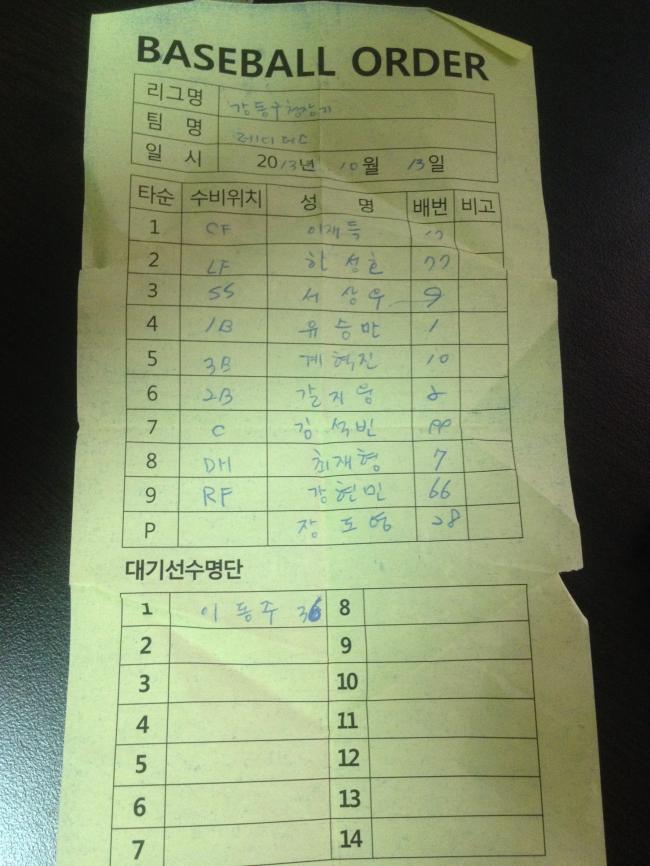 BASEBALL ORDER
리그명 강동구청장기
팀 명
일 시 2013년 10월 13일
타순 수비위치 성 명 배번 비고
1 CF 이재득
2 LF 한성호 77
3 SS 서상우 9
4 1B 유승만 1
5 3B 계혁진 10
6 2B 갈지웅 8
7 C 김석빈
8 DH 최재형 7
9 RF 강현민 66
P 장도영 28
대기선수명단
1 이동주 36 8
2 9
3 10
4 11
5 12
6 13
7 14